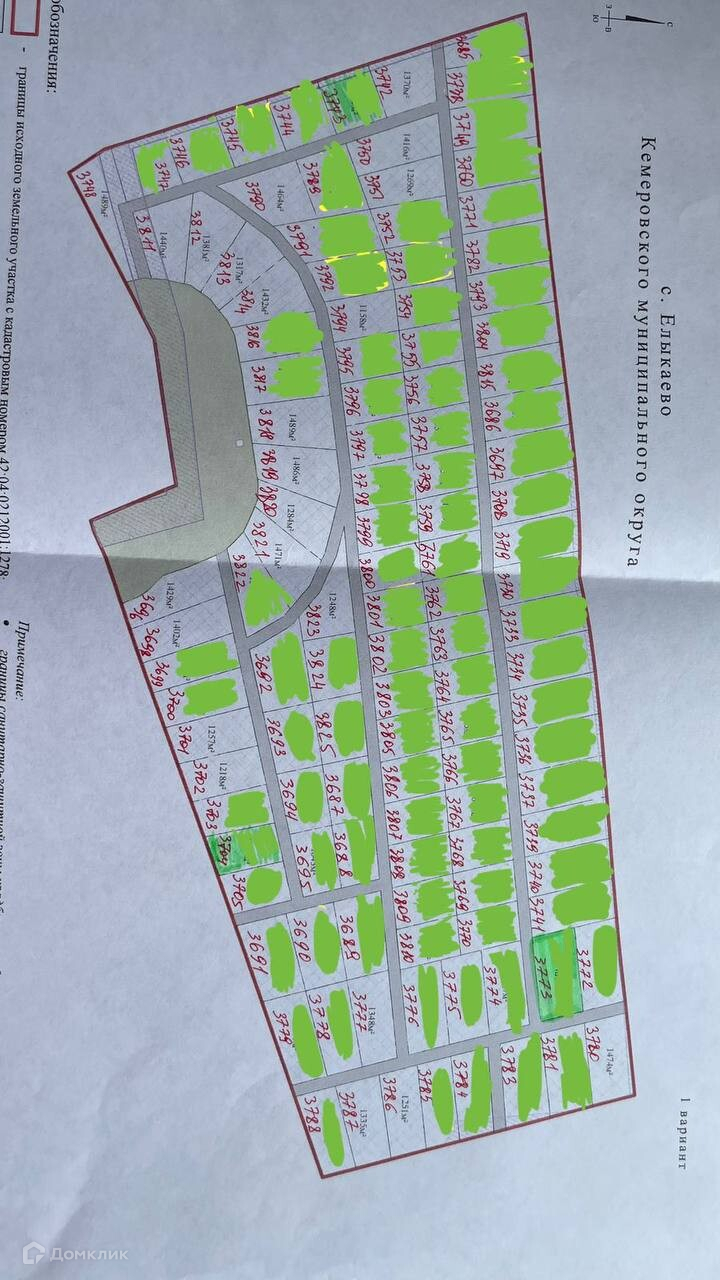 с. Елыкаево
Кемеровского муниципального округа
1 вариант
с
з
в
ю
обозначения:
- границы исходного земельного участка с кадастровым номером 42:04:0212001:1278;
Примечание:
3685
3738
3749
3760
3771
3782
3793
3804
3815
3686
3697
3708
3719
3730
3733
3734
3735
3736
3737
3739
3740
3741
3773
3772
3742
1370м²
3743
3744
3745
3746
3747
3748
1489м²
3750
1416м²
3751
1269м²
3752
3753
3754
3755
3756
3757
3758
3759
3761
3762
3763
3764
3765
3766
3767
3768
3769
3770
3774
3775
3776
3789
3790
1464м²
3791
3792
3794
1158м²
3795
3796
3797
3798
3799
3800
3801
3802
3803
3805
3806
3807
3808
3809
3810
3811
1440м²
3812
1381м²
3813
1317м²
3814
1432м²
3816
3817
3818
1489м²
3819
1486м²
3820
1284м²
3821
1471м²
3822
3823
1248м²
3824
3825
3687
3688
3689
3692
3693
3694
3695
3690
3691
3696
1429м²
3698
1402м²
3699
3700
3701
1257м²
3702
1218м²
3703
3704
3705
3777
1348м²
3778
3779
3780
1474м²
3781
3783
3784
3785
3786
1251м²
3787
1335м²
3788
Домклик